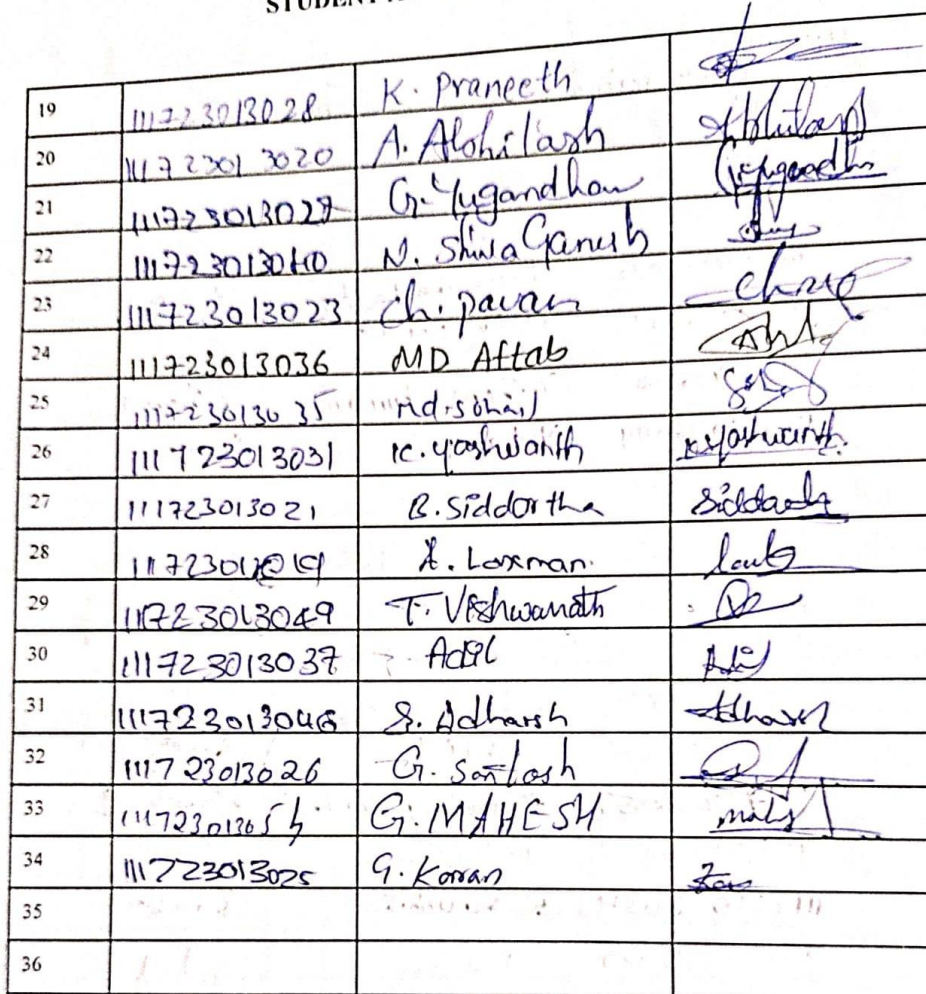 STUDENT
19 111723013028 K. Praneeth
20 111723013020 A. Abhilash Abhilash
21 111723013027 G. Yugandhar
22 111723013040 N. Shiva Ganesh
23 111723013023 Ch. pavan
24 111723013036 MD Aftab
25 111723013035 Md. Sohail
26 111723013031 K. yashwanth K yashwanth.
27 111723013021 B. Siddortha
28 A. Laxman.
29 111723013049 T. Vishwanath
30 111723013037 Adil Adil
31 S. Adharsh Adharsh
32 111723013026 G. Santosh
33 G. MAHESH
34 111723013025 G. Karan
35
36